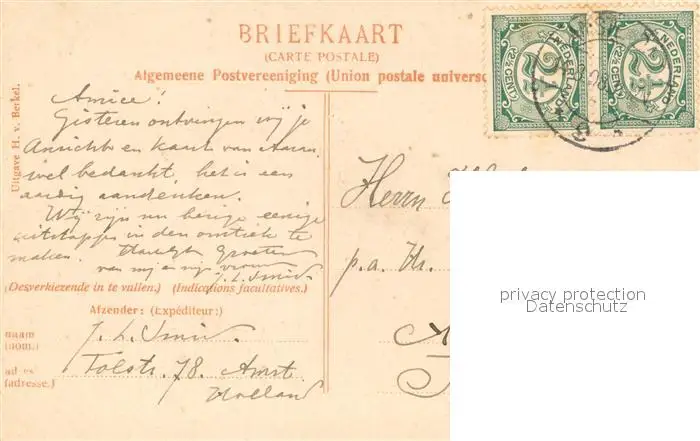 BRIEFKAART
(CARTE POSTALE)
Algemeene Postvereeniging (Union postale universe
Uitgave H. v. Berkel.
NEDERLAND
2½ CENT
NEDERLAND
2½ CENT
Amice!
Gisteren ontvingen wij je
Ansichtbenkaart van Aarau,
wel bedankt, het is een
aardig aandenken.
Wij zijn nu bezig eenige
uitstapjes in den omtrek te
maken. Hartel. Groeten
van mij en mijn vrouw
J. L. Smid.
(Desverkiezende in te vullen.) (Indications facultatives.)
Afzender: (Expéditeur:)
naam
(nom.)
J. L. Smid.
ad es
(adresse.)
Tolstr. 78 Amst.
Holland
Herrn
p.a. Hr.
privacy protection
Datenschutz